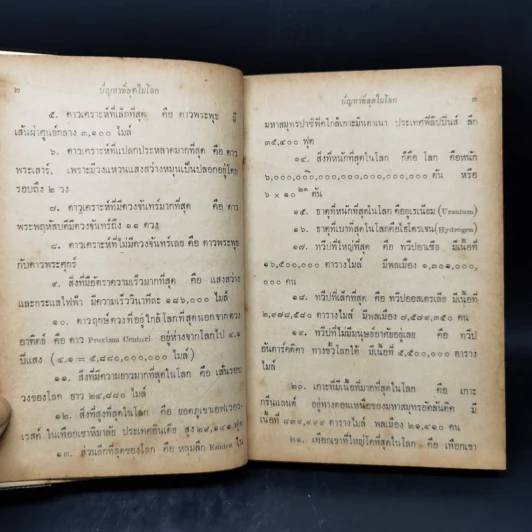 ๒
ปัญหาที่สุดในโลก
๕. ดาวเคราะห์ที่เล็กที่สุด คือ ดาวพระพุธ มี
เส้นผ่าศูนย์กลาง ๓,๑๐๐ ไมล์
๖. ดาวเคราะห์ที่แปลกประหลาดมากที่สุด คือ ดาว
พระเสาร์, เพราะมีวงแหวนแสงสว่างหมุนเป็นปลอกอยู่โดย
รอบถึง ๒ วง
๗. ดาวเคราะห์ที่มีดวงจันทร์มากที่สุด คือ ดาว
พระพฤหัสบดีมีดวงจันทร์ถึง ๑๑ ดวง
๘. ดาวเคราะห์ที่ไม่มีดวงจันทร์เลย คือ ดาวพระพุธ
กับดาวพระศุกร์
๙. สิ่งที่มีอัตราความเร็วมากที่สุด คือ แสงสว่าง
และกระแสไฟฟ้า มีความเร็ววินาทีละ ๑๘๖,๐๐๐ ไมล์
๑๐. ดาวฤกษ์ดวงที่อยู่ใกล้โลกที่สุดนอกจากดวง
อาทิตย์ คือ ดาว Proxium Centuri อยู่ห่างจากโลกไป ๔.๑
ปีแสง (๔.๑ = ๕,๘๘๐,๐๐๐,๐๐๐ ไมล์)
๑๑. สิ่งที่มีความยาวมากที่สุดในโลก คือ เส้นรอบ
วงของโลก ยาว ๒๔,๘๘๐ ไมล์
๑๒. สิ่งที่สูงที่สุดในโลก คือ ยอดภูเขาเอฟเวอเร
เรสต์ ในเทือกเขาหิมาลัย ประเทศอินเดีย สูง ๒๙,๑๔๑ ฟุต
๑๓. ส่วนลึกที่สุดของโลก คือ หลุมลึก Emden ใน
ปัญหาที่สุดในโลก
๓
มหาสมุทรปาซิฟิคใกล้เกาะมินดาเนา ประเทศฟิลิปปินส์ ลึก
๓๕,๔๐๐ ฟุต
๑๔. สิ่งที่หนักที่สุดในโลก ก็คือ โลก คือหนัก
๖,๐๐๐,๐๐๐,๐๐๐,๐๐๐,๐๐๐,๐๐๐,๐๐๐ ตัน หรือ
๖ × ๑๐ ตัน
๑๕. ธาตุที่หนักที่สุดในโลก คือยูเรเนียม (Uranium)
๑๖. ธาตุที่เบาที่สุดในโลกคือไฮโดรเจน (Hydrogen)
๑๗. ทวีปที่ใหญ่ที่สุด คือ ทวีปอาเซีย มีเนื้อที่
๑๖,๕๐๐,๐๐๐ ตารางไมล์ มีพลเมือง ๑,๓๐๑,๐๐๐,
๐๐๐ คน
๑๘. ทวีปที่เล็กที่สุด คือ ทวีปออสเตรเลีย มีเนื้อที่
๒,๙๗๔,๕๘๐ ตารางไมล์ มีพลเมือง ๗,๕๗๙,๓๕๐ คน
๑๙. ทวีปที่ไม่มีมนุษย์อาศัยอยู่เลย คือ ทวีป
อันตาร์คติคคา ทางขั้วโลกใต้ มีเนื้อที่ ๕,๕๐๐,๐๐๐ ตาราง
ไมล์
๒๐. เกาะที่มีเนื้อที่มากที่สุดในโลก คือ เกาะ
กรีนแลนด์ อยู่ทางตอนเหนือของมหาสมุทรอัตลันติค มี
เนื้อที่ ตารางไมล์ พลเมือง ๒๑,๔๑๐ คน
๒๑. เทือกเขาที่ใหญ่โตที่สุดในโลก คือ เทือกเขา